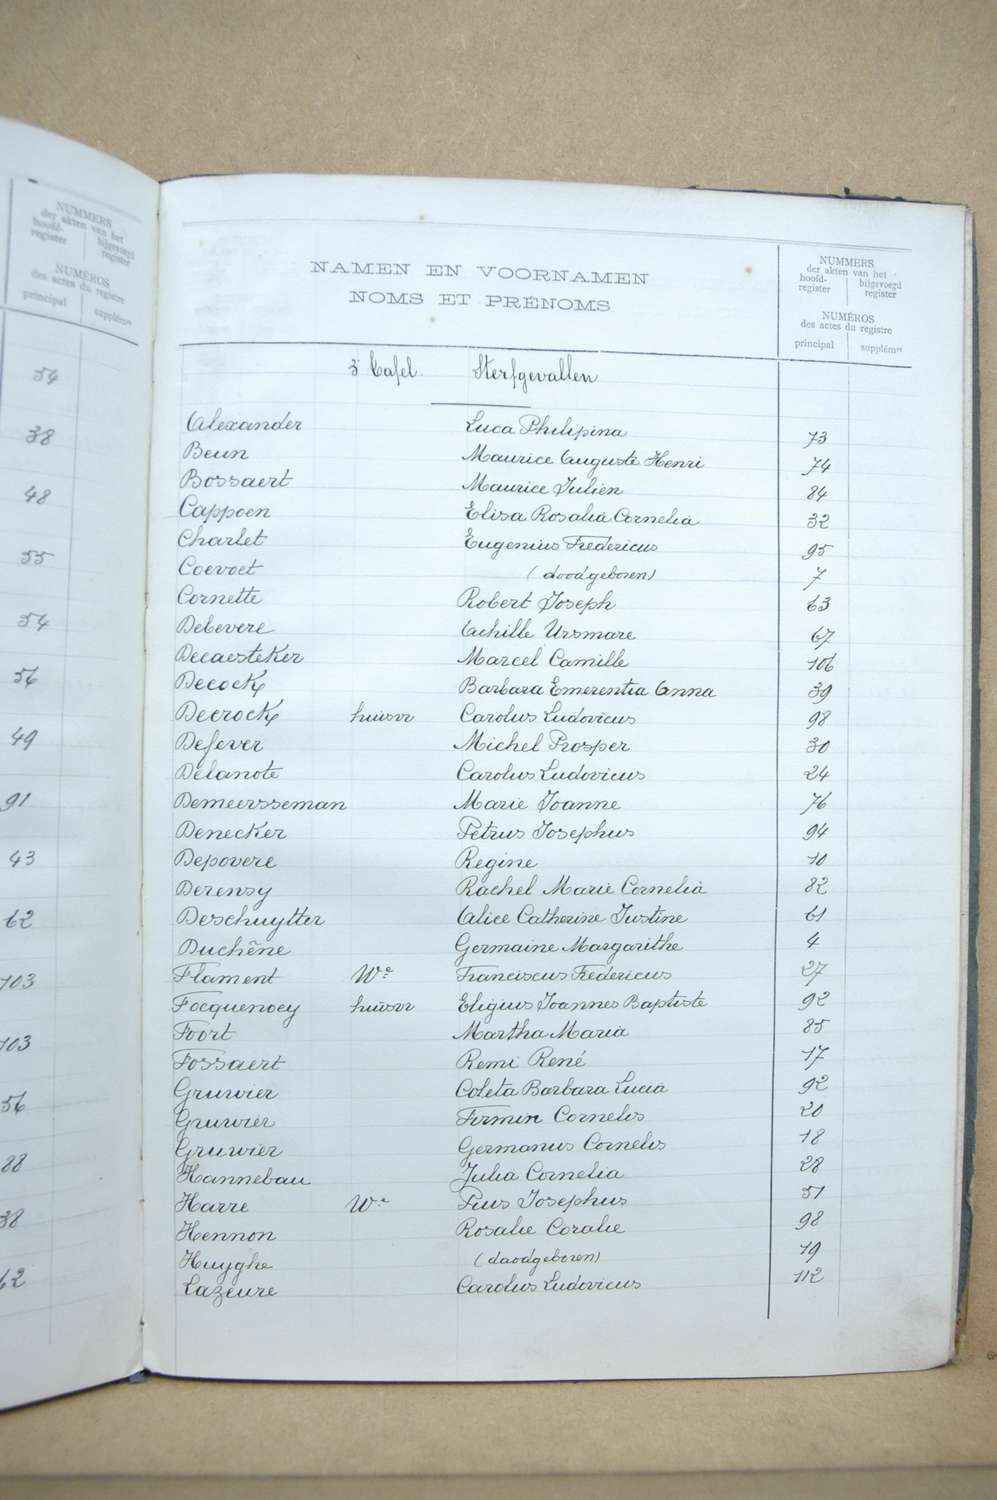 NUMMERS
der akten van het
hoofd- bijgevoegd
register register
NUMÉROS
des actes du registre
principal supplémre
54
38
48
55
54
56
49
91
43
62
103
103
56
88
38
62
NAMEN EN VOORNAMEN
NOMS ET PRÉNOMS
NUMMERS
der akten van het
hoofd- bijgevoegd
register register
NUMÉROS
des actes du registre
principal supplémre
3e Tafel. Sterfgevallen
Alexander Luca Philipina 73
Beun Maurice Auguste Henri 74
Bossaert Maurice Julien 84
Cappoen Elisa Rosalia Cornelia 32
Charlet Eugenius Fredericus 95
Coevoet (doodgeboren) 7
Cornette Robert Joseph 63
Debevere Achille Ursmare 67
Decaesteker Marcel Camille 106
Decock Barbara Emerentia Anna 39
Decrock huisvr Carolus Ludovicus 98
Defever Michel Prosper 30
Delanote Carolus Ludovicus 24
Demeersseman Marie Joanne 76
Denecker Petrus Josephus 94
Depovere Regine 10
Derensy Rachel Marie Cornelia 82
Deschuytter Alice Catherine Justine 61
Duchêne Germaine Margarithe 4
Flament We Franciscus Fredericus 27
Focquenoey huisvr Eligius Joannes Baptiste 92
Foort Martha Maria 85
Fossaert Remi René 17
Gruwier Coleta Barbara Lucia 92
Gruwier Firmin Cornelis 20
Gruwier Germanus Cornelis 18
Hannebau Julia Cornelia 28
Harre We Pius Josephus 51
Hennon Rosalie Coralie 98
Huyghe (doodgeboren) 19
Lazeure Carolus Ludovicus 112